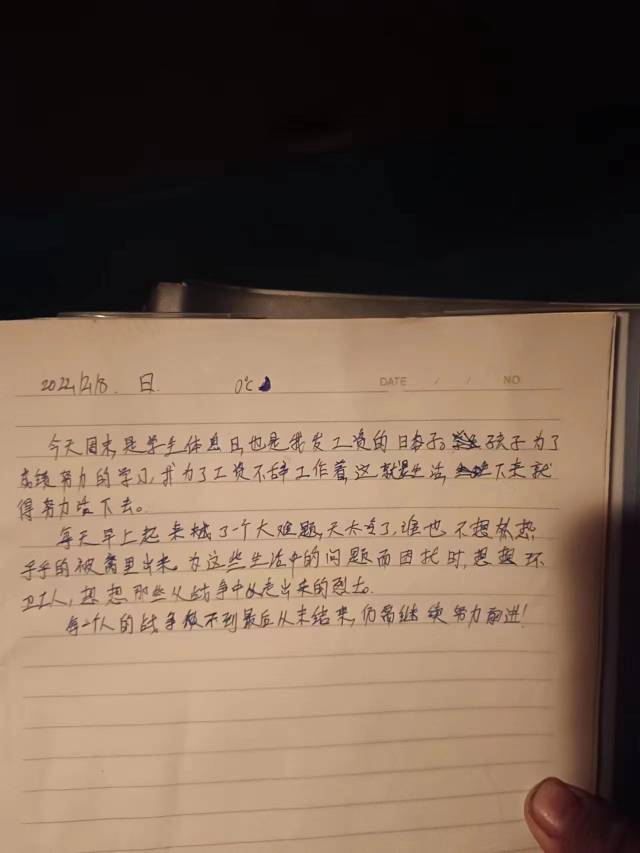 2022/12/18. 日. 0℃ DATE / / NO
今天周末,是学生休息日,也是我发工资的日子。孩子为了
成绩努力的学习,我为了工资不辞工作着,这就是生活,下来就
得努力活下去。
每天早上起来成了一个大难题,天太冷了,谁也不想从热
乎乎的被窝里出来。为这些生活中的问题而困扰时,想想环
卫工人,想想那些从战争中走出来的烈士。
每个人的战争不到最后从未结束,仍需继续努力前进!